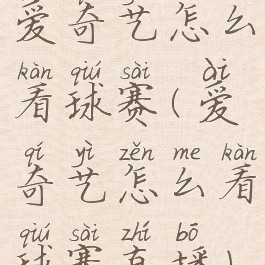 爱奇艺怎么
kàn qiú sài ài
看球赛(爱
qí yì zěn me kàn
奇艺怎么看
qiú sài zhí bō
球赛直播)